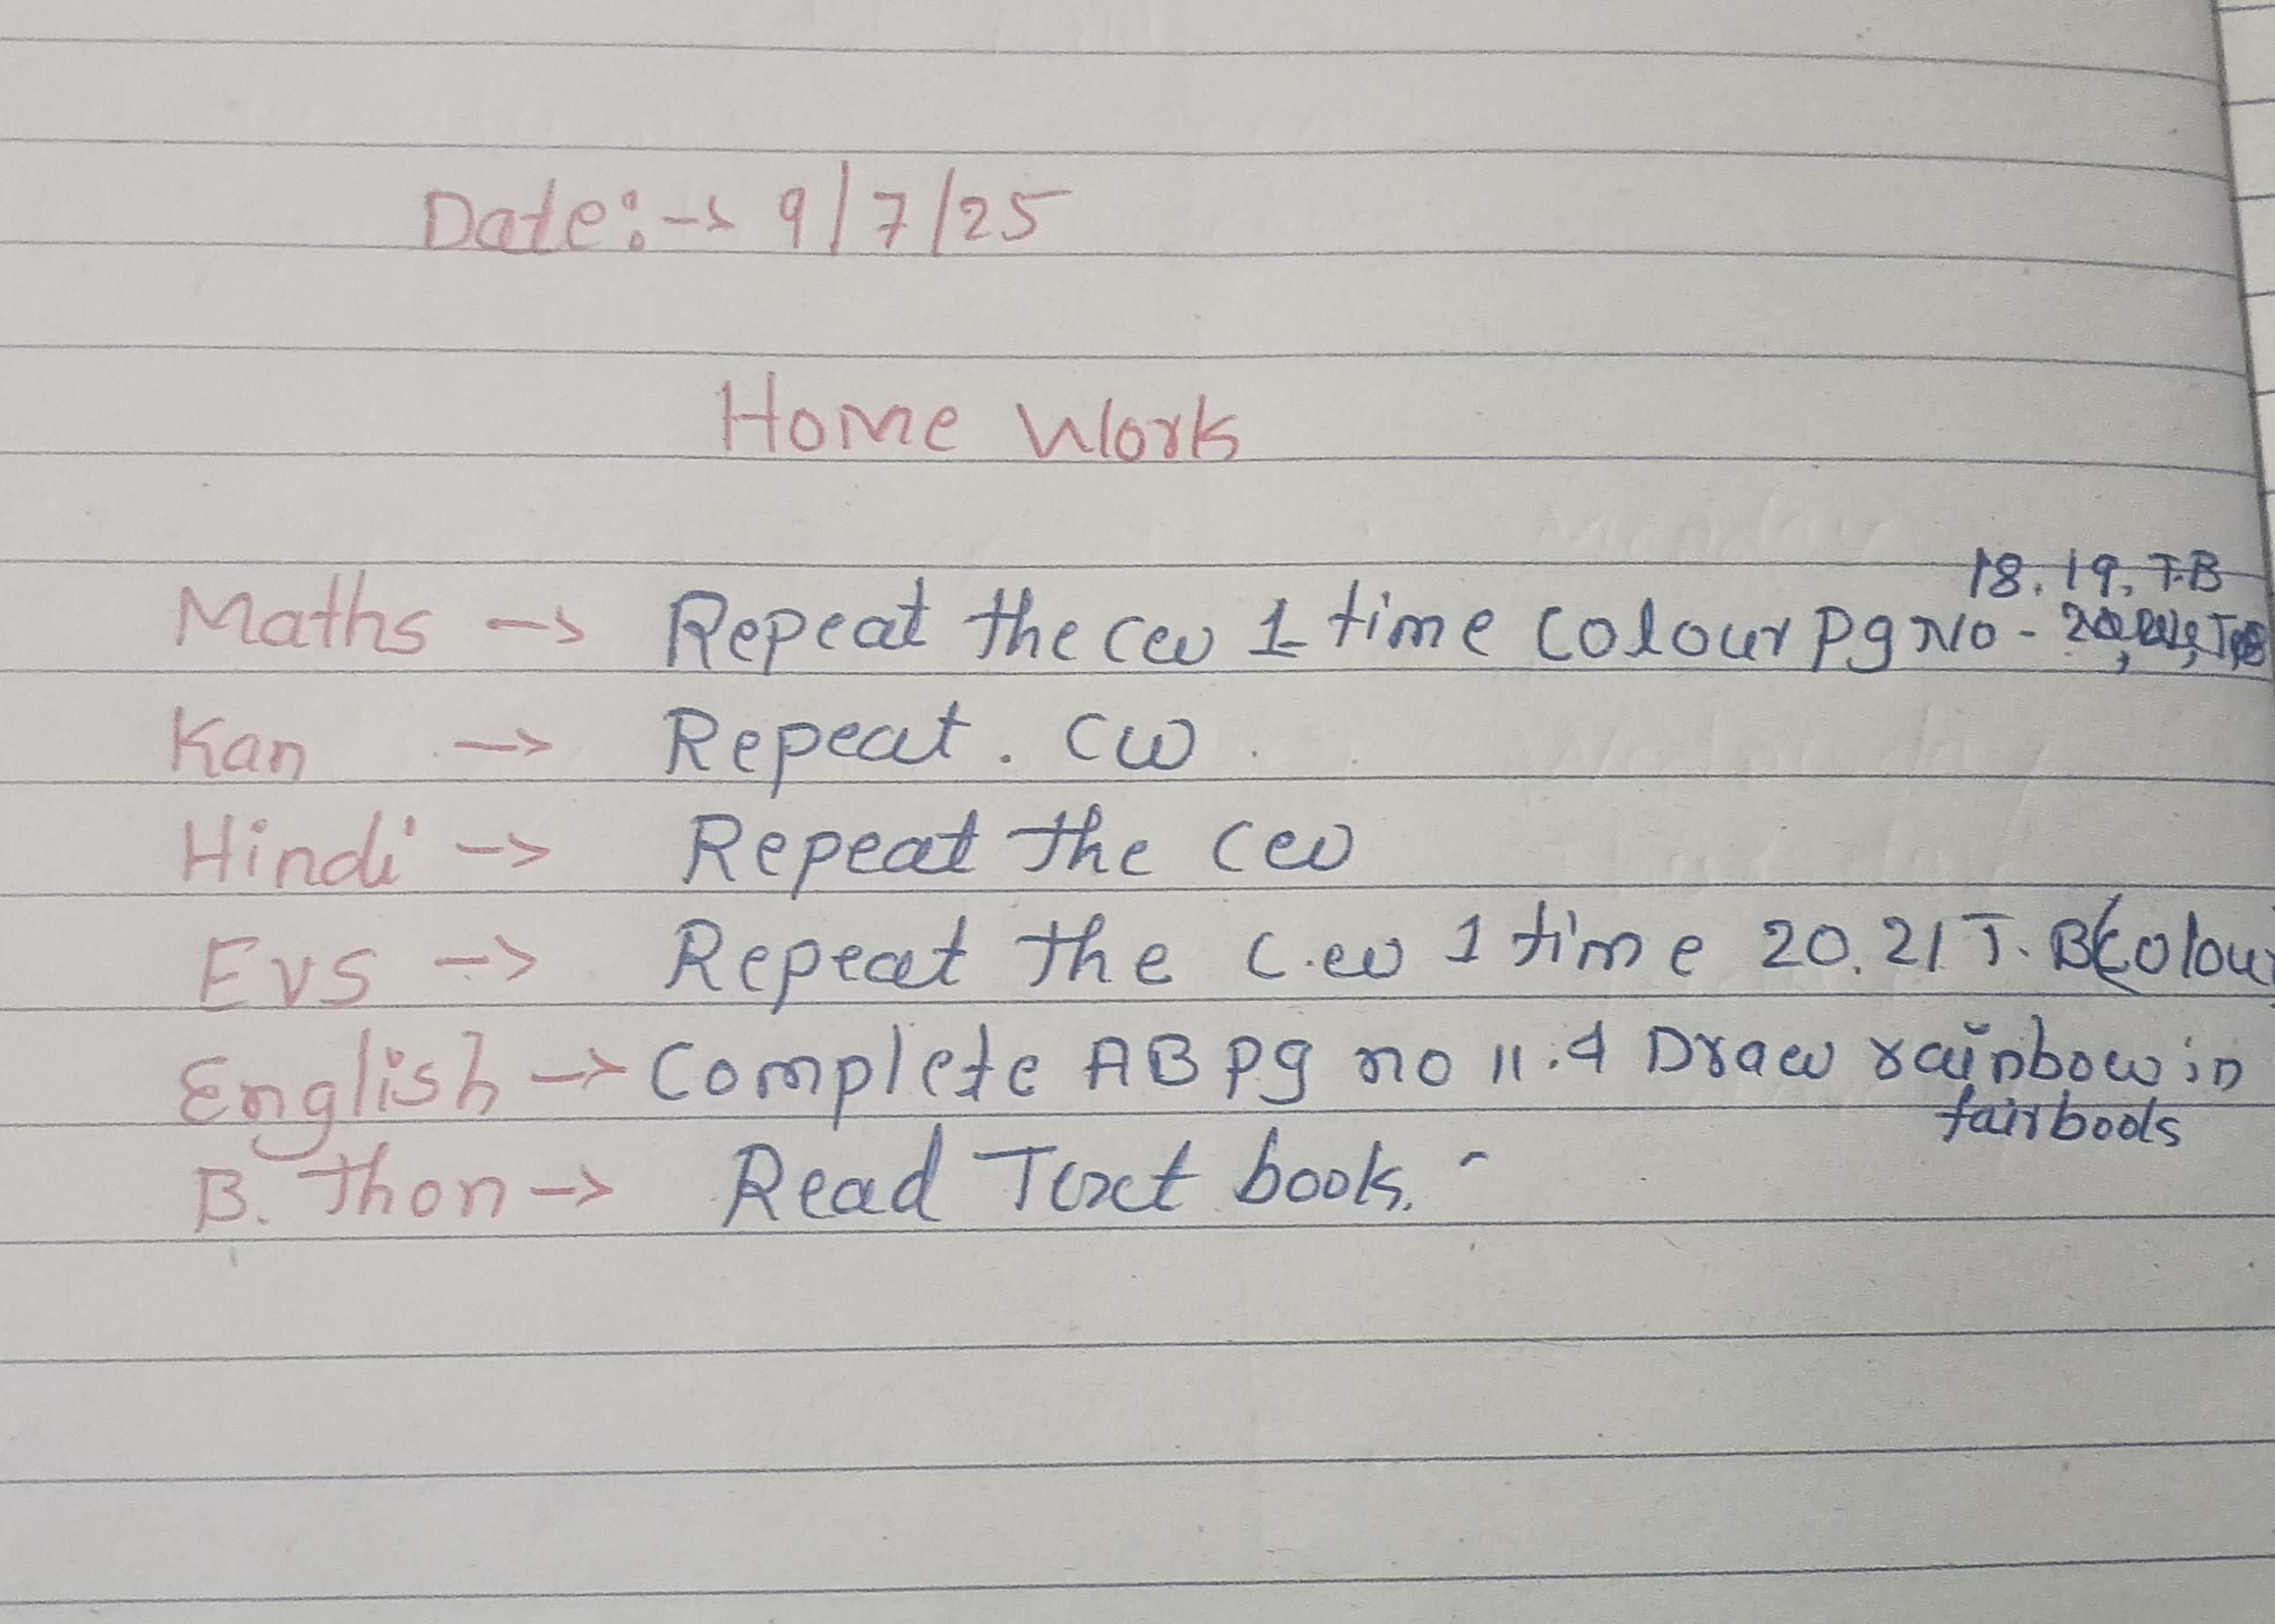 Date:-> 9/7/25
Home Work
18.19. T.B
Maths -> Repeat the cw 1 time Colour Pg No -
Kan -> Repeat. CW
Hindi -> Repeat the cw
Evs -> Repeat the c.w 1 time 20.21 T.B(Colour
English -> Complete AB Pg no 11.4 Draw rainbow in
fairbook
B. Thon -> Read Text book.